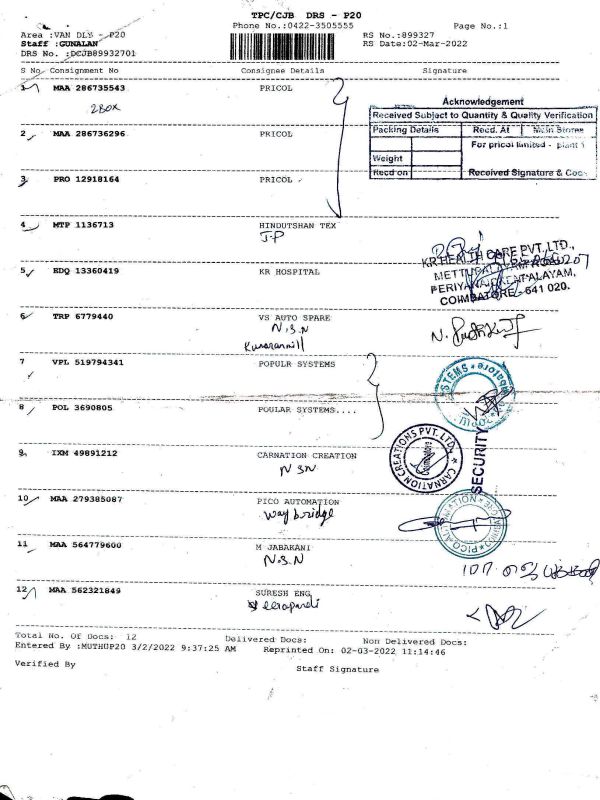 TPC/CJB DRS - P20
Phone No.:0422-3505555 Page No.:1
Area :VAN DLS - P20 RS No.:899327
Staff :GUNALAN RS Date:02-Mar-2022
DRS No. :DCJB89932701
S No Consignment No Consignee Details Signature
1 MAA 286735543 PRICOL
2 BOX
Acknowledgement
Received Subject to Quantity & Quality Verification
Packing Details Recd. At Main Stores
2 MAA 286736296 PRICOL
For pricol limited - plant 1
Weight
Recd on Received Signature &
3 PRO 12918164 PRICOL
4 MTP 1136713 HINDUTSHAN TEX
J-P
KR HEALTH CARE PVT. LTD.,
5 EDQ 13360419 KR HOSPITAL
COIMBATORE - 641 020.
6 TRP 6779440 VS AUTO SPARE
N.S.N
7 VPL 519794341 POPULR SYSTEMS
8 POL 3690805 POULAR SYSTEMS....
SECURITY
9 IXM 49891212 CARNATION CREATION
N S N
CARNATION CREATIONS PVT. LTD.
Coimbatore
10 MAA 279385087 PICO AUTOMATION
way bridge
PICO AUTOMATION
11 MAA 564779600 M JABAKANI
N.S.N
12 MAA 562321849 SURESH ENG
Total No. Of Docs: 12 Delivered Docs: Non Delivered Docs:
Entered By :MUTHUP20 3/2/2022 9:37:25 AM Reprinted On: 02-03-2022 11:14:46
Verified By Staff Signature